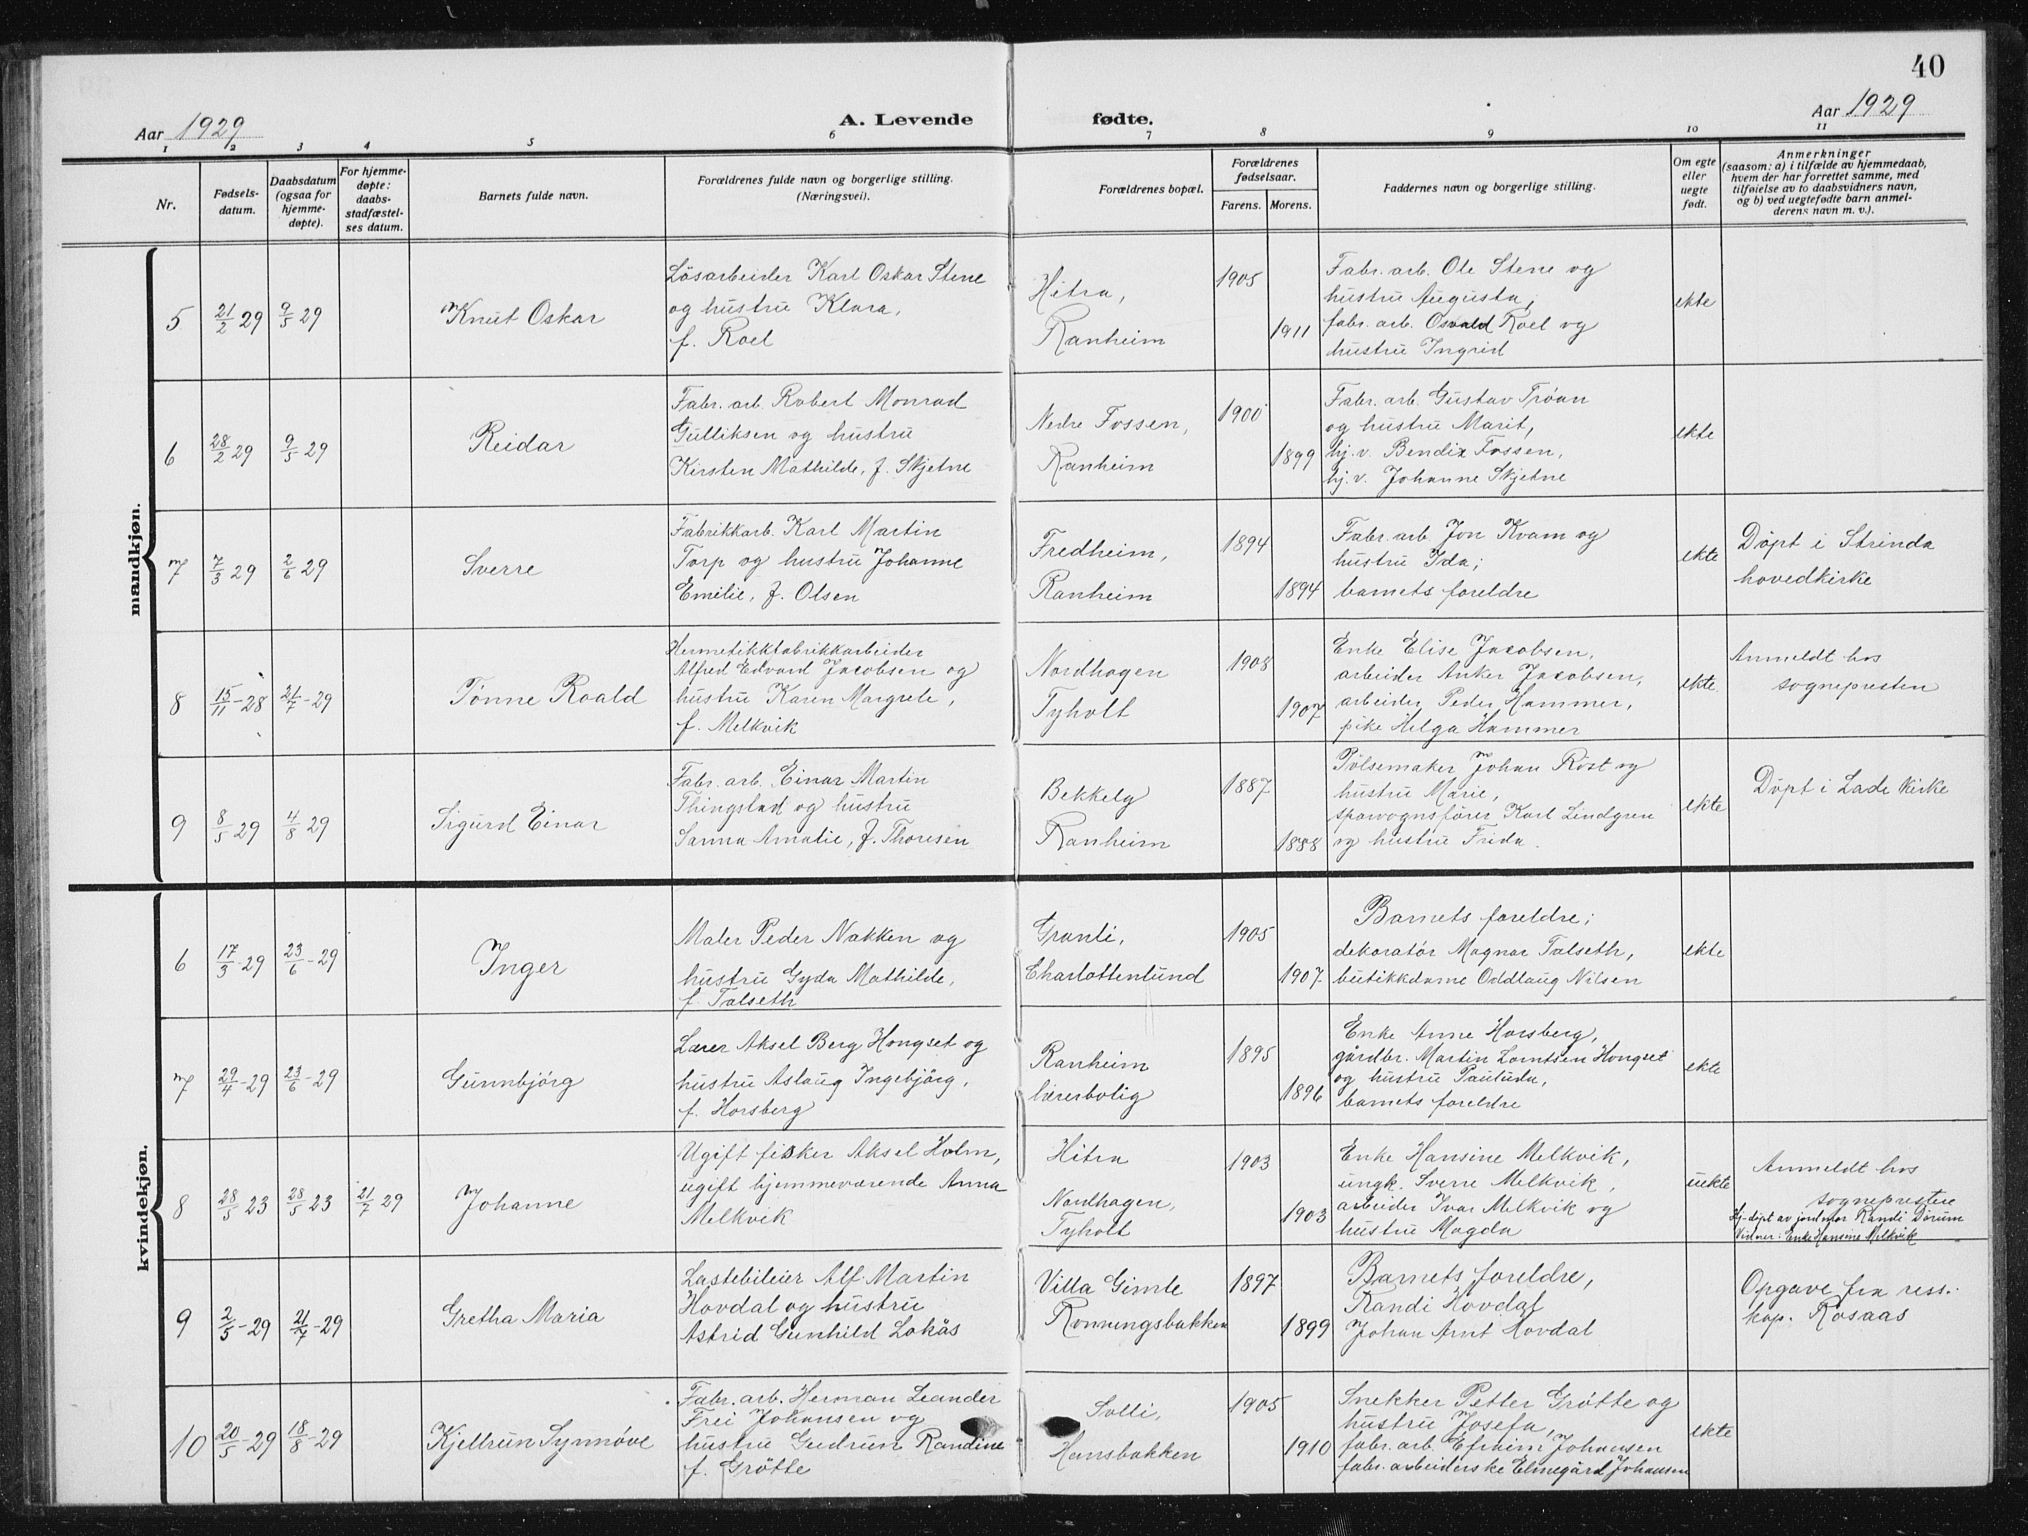 40
Aar 1929
A. Levende fødte.
Aar 1929
1 2 3 4 5 6 7 8 9 10 11
Nr.
Fødsels-
datum.
Daabsdatum
(ogsaa for
hjemme-
døpte).
For hjemme-
døpte:
daabs-
stadfæstel-
ses datum.
Barnets fulde navn.
Forældrenes fulde navn og borgerlige stilling.
(Næringsvei).
Forældrenes bopæl.
Forældrenes
fødselsaar.
Farens. Morens.
Faddernes navn og borgerlige stilling.
Om egte
eller
uegte
født.
Anmerkninger
(saasom: a) i tilfælde av hjemmedaab,
hvem der har forrettet samme, med
tilføielse av to daabsvidners navn,
og b) ved uegtefødte barn anmel-
derens navn m. v.).
mandkjøn.
5 21/2 29 9/5 29
Knut Oskar
Løsarbeider Karl Oskar Stene
og hustru Klara,
f. Roel
Hitra,
Ranheim
1905
1911
Fabr. arb. Ole Stene og
hustru Augusta;
fabr. arb. Osvald Roel og
hustru Ingrid
ekte
6 28/2 29 9/5 29
Reidar
Fabr. arb. Robert Monrad
Gulliksen og hustru
Kirsten Mathilde, f. Skjetne
Nedre Fossen,
Ranheim
1900
1899
Fabr. arb. Gustav Trøan
og hustru Marit,
hj. v. Bendix Fossen,
hj. v. Johanne Skjetne
ekte
7 7/3 29 2/6 29
Sverre
Fabrikkarb. Karl Martin
Torp og hustru Johanne
Emilie, f. Olsen
Fredheim,
Ranheim
1894
1894
Fabr. arb. Jon Kvam og
hustru Ida;
barnets foreldre
ekte
Døpt i Strinda
hovedkirke
8 15/11-28 21/7-29
Tønne Roald
Hermetikkfabrikkarbeider
Alfred Edvard Jacobsen og
hustru Karen Margrete,
f. Melkvik
Nordhagen
Tyholt
1908
1907
Enke Elise Jacobsen,
arbeider Anker Jacobsen,
arbeider Peder Hammer,
pike Helga Hammer
ekte
Anmeldt hos
sognepresten
9 8/5 29 4/8 29
Sigurd Einar
Fabr. arb. Einar Martin
Thingstad og hustru
Sanna Amalie, f. Thoresen
Bekkely
Ranheim
1887
1888
Pølsemaker Johan Rost og
hustru Marie,
sporvognsfører Karl Lindgren
og hustru Frida.
ekte
Døpt i Lade kirke
kvindekjøn.
6 17/3-29 23/6-29
Inger
Maler Peder Nakken og
hustru Gyda Mathilde,
f. Talseth
Granli,
Charlottenlund
1905
1907
Barnets foreldre;
dekoratør Magnar Talseth,
butikkdame Oddlaug Nilsen
ekte
7 29/4-29 23/6-29
Gunnbjørg
Lærer Aksel Berg Hongset og
hustru Aslaug Ingebjørg,
f. Horsberg
Ranheim
lærerbolig
1895
1896
Enke Anne Horsberg,
gårdbr. Martin Lorntsen Hongset
og hustru Pauluda,
barnets foreldre
ekte
8 28/5 23 28/5 23 21/7 29
Johanne
Ugift fisker Aksel Holm,
ugift hjemmeværende Anna
Melkvik
Hitra
Nordhagen,
Tyholt
1903
1903
Enke Hansine Melkvik,
ungk. Sverre Melkvik,
arbeider Ivar Melkvik og
hustru Magda
uekte
Anmeldt hos
sognepresten
Hj-døpt av jordmor Randi Dørum
Vidner: Enke Hansine Melkvik
9 2/5-29 21/7-29
Gretha Maria
Lastebileier Alf Martin
Hovdal og hustru
Astrid Gunhild Lokås
Villa Gimle
Rønningsbakken
1897
1899
Barnets foreldre,
Randi Hovdal
Johan Arnt Hovdal
Opgave fra ress.
kap. Rosaas
10 20/5-29 18/8-29
Kjellrun Synnøve
Fabr. arb. Herman Leander
Frei Johansen og
hustru Gudrun Randine
f. Grøtte
Solli,
Hansbakken
1905
1910
Snekker Petter Grøtte og
hustru Josefa,
fabr. arb. Efraim Johansen
fabr. arbeiderske Elinegård Johansen
ekte